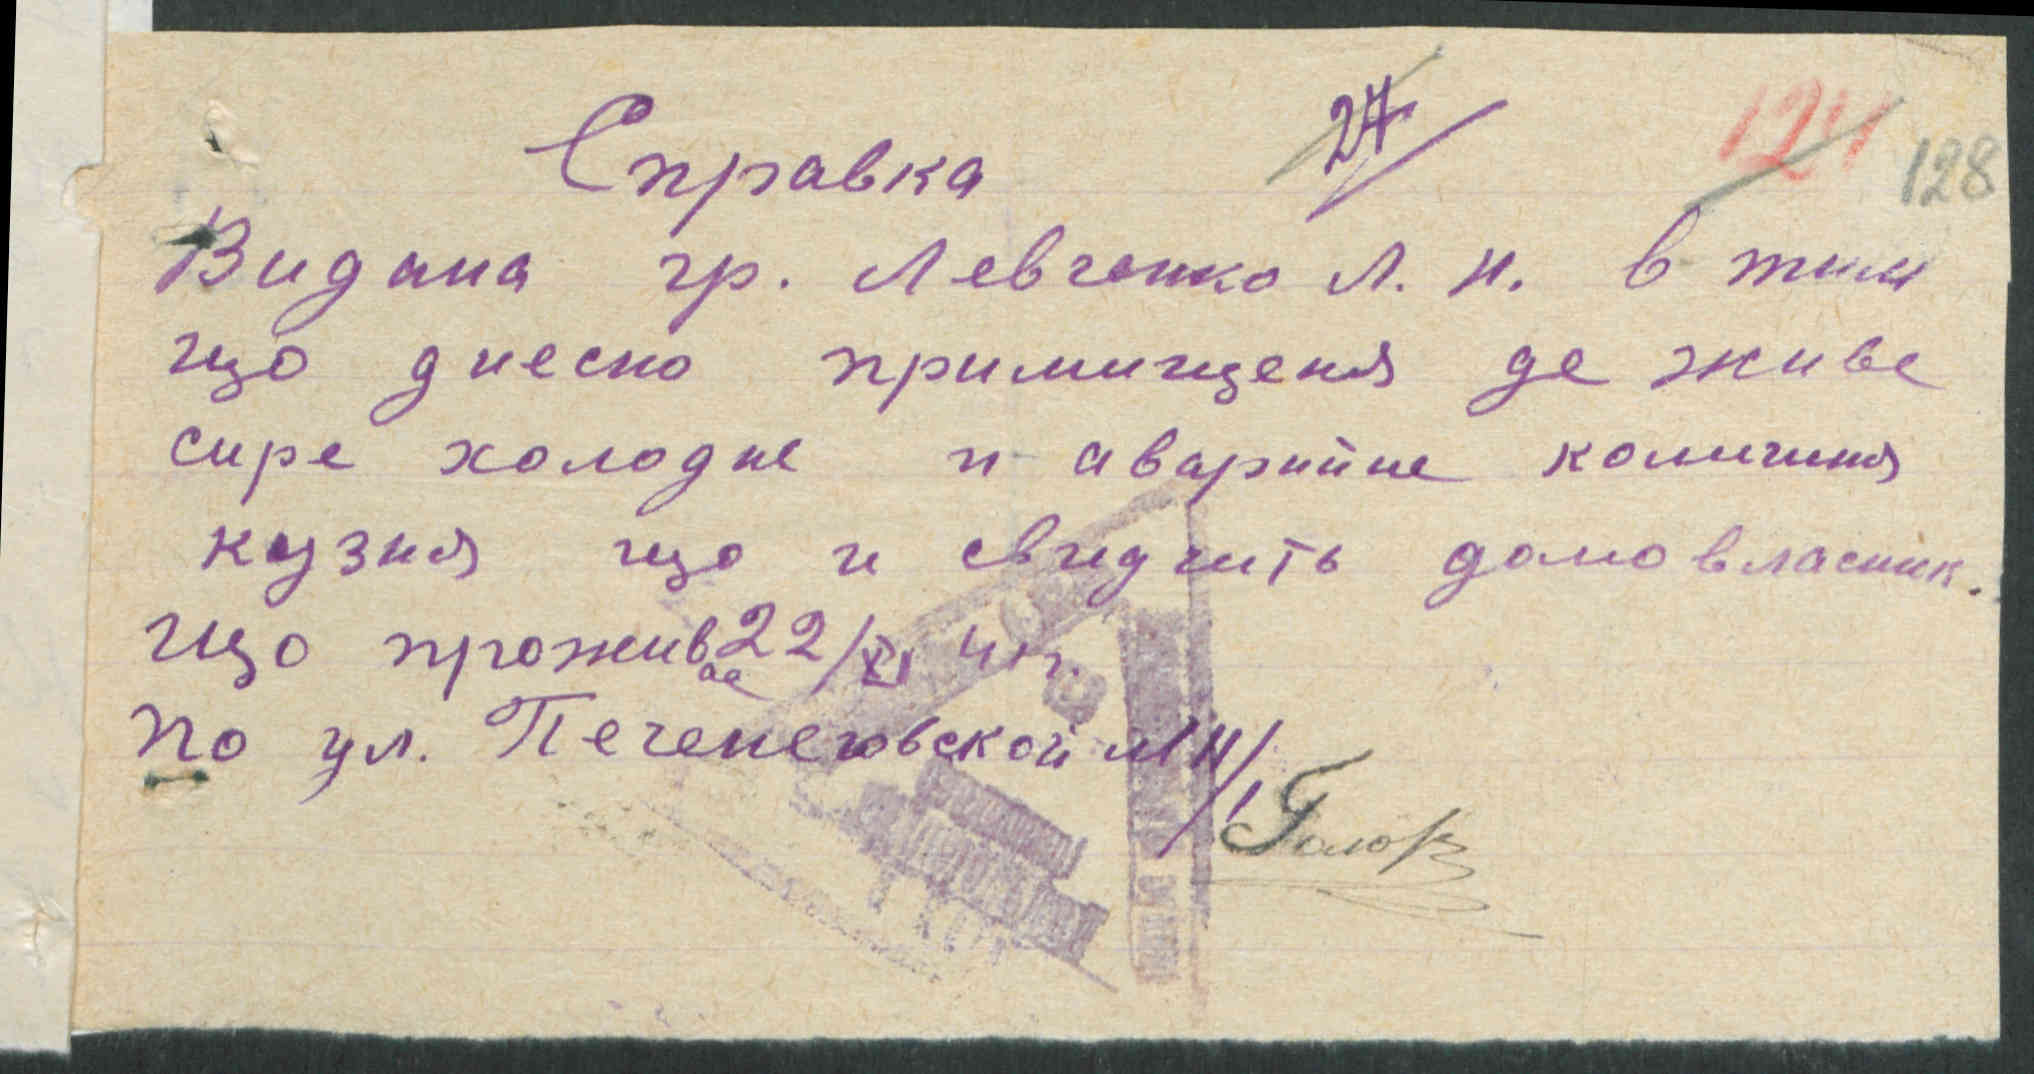 27
124
128
Справка
Видана гр. Левченко Л. И. в тим
що диесно примищеня де живе
сире холодне и аварийне комишня
кузня що и свидчить домовласник.
Що проживае 22/XI 41 г.
По ул. Печенеговской № 4/1